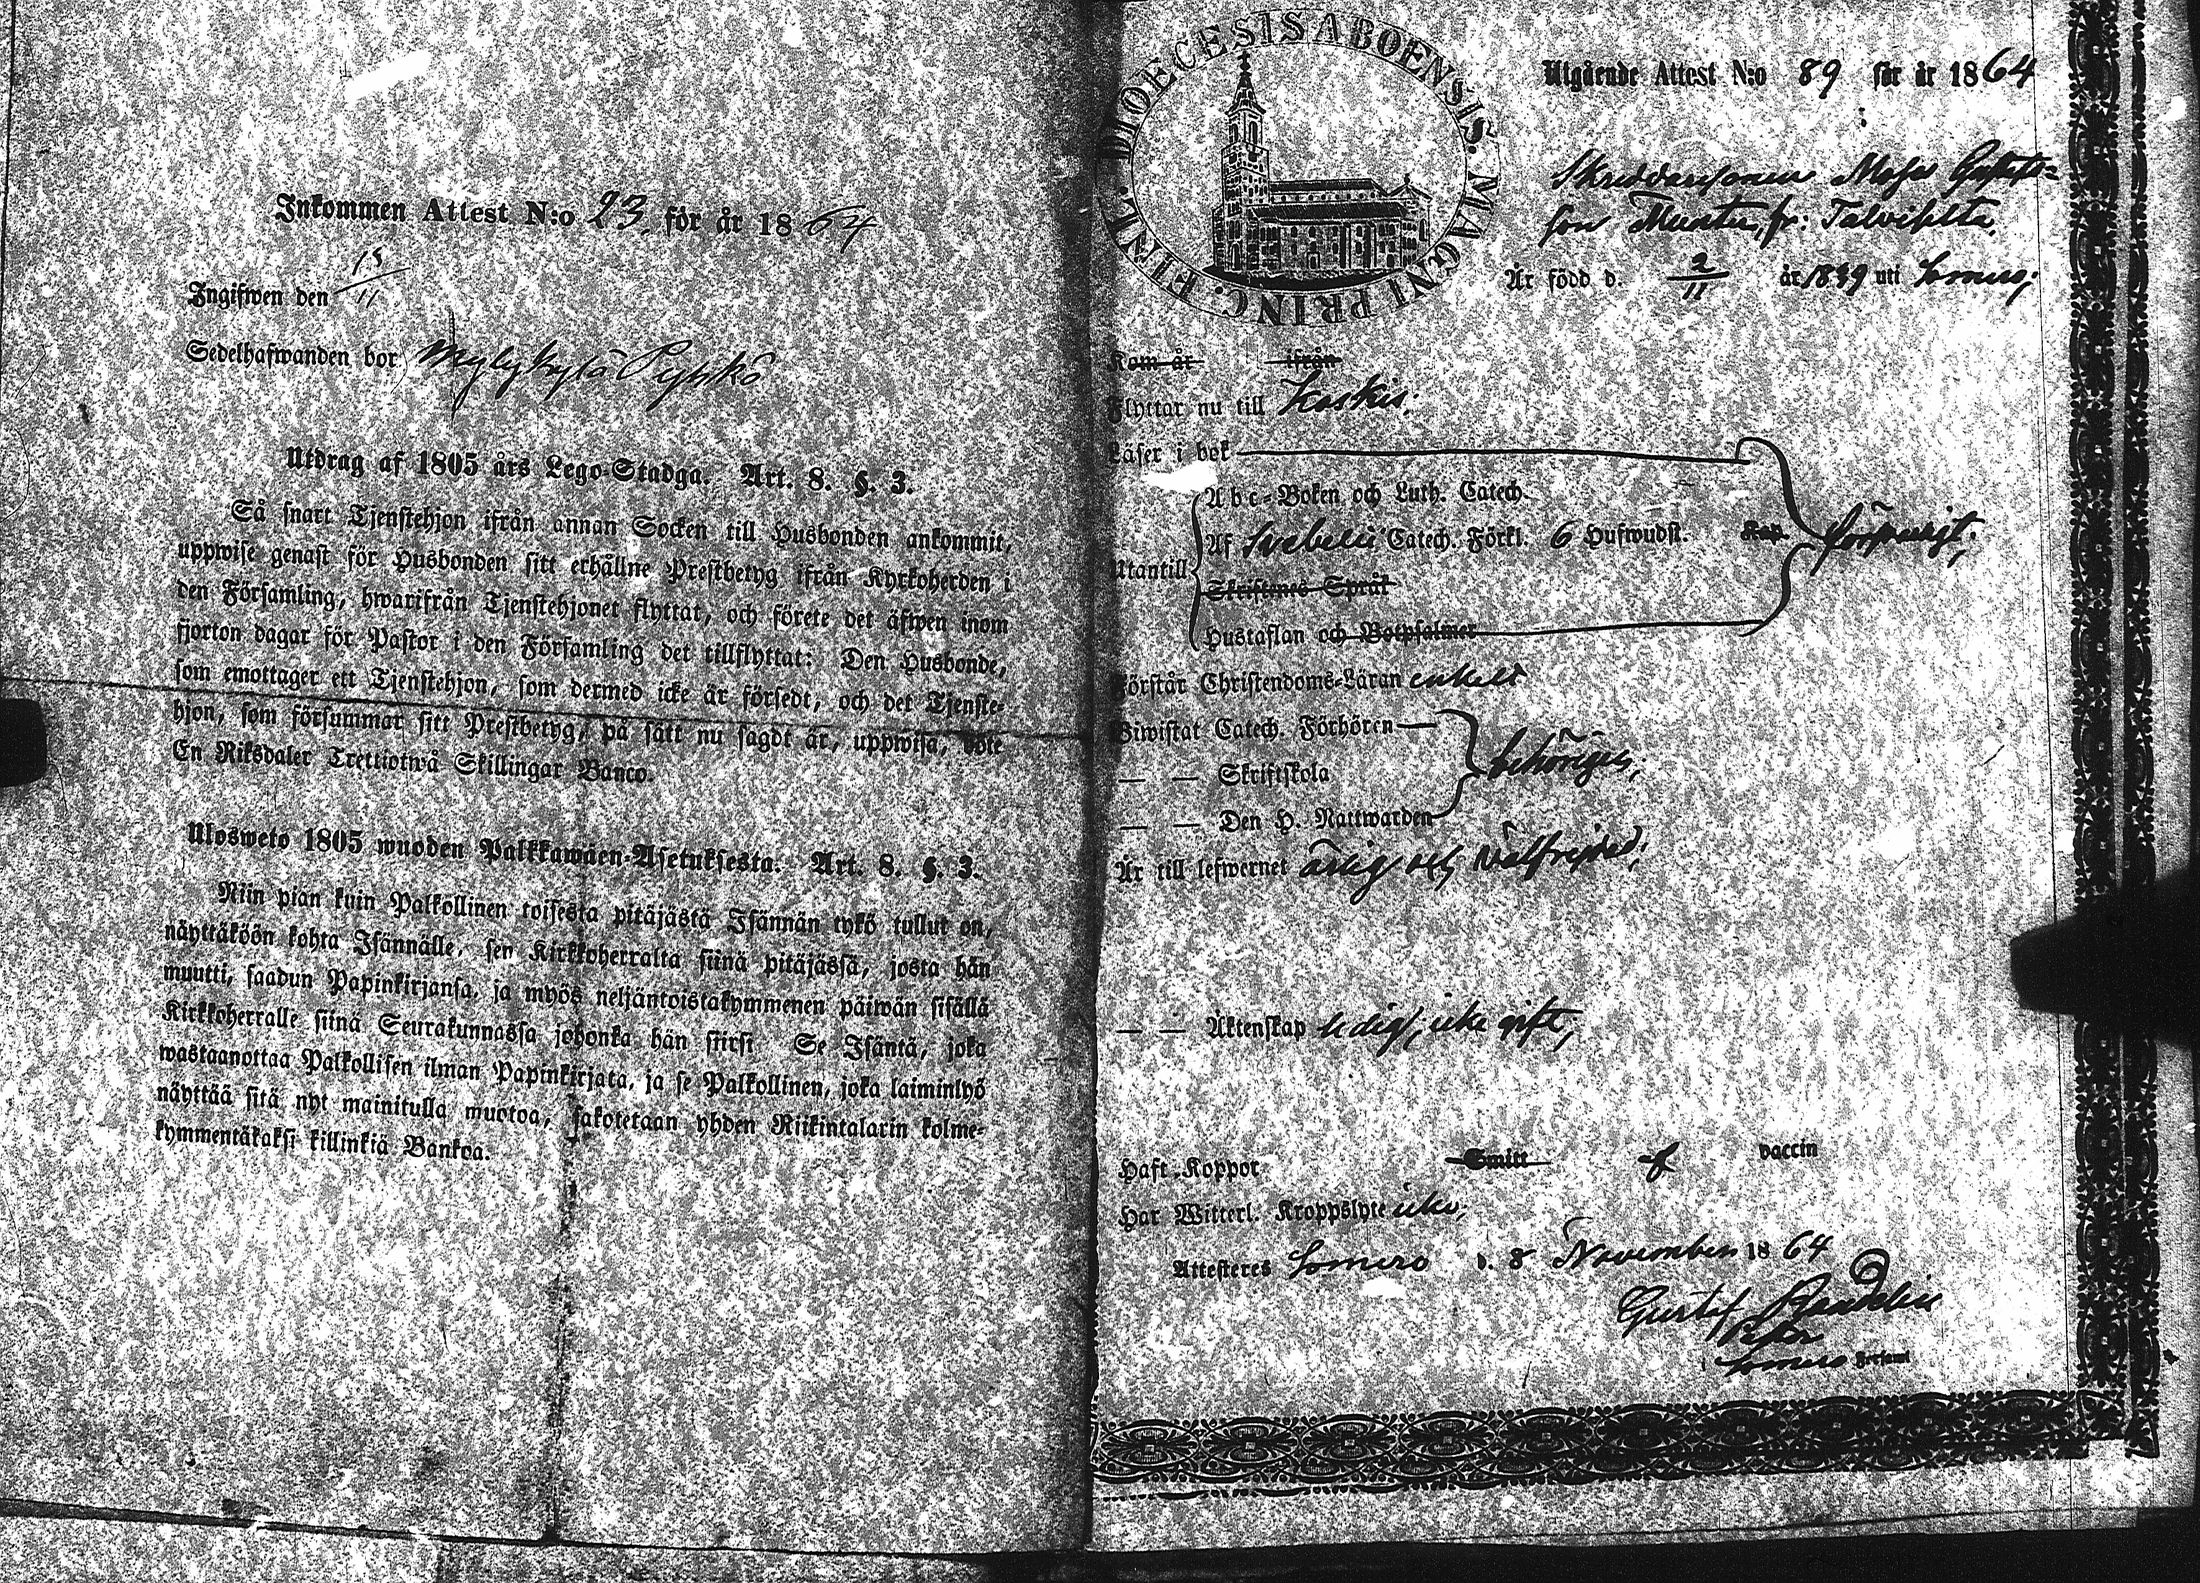 Inkommen Attest N:o 23 för år 1864
Ingifwen den 15/11
Sedelhafwanden bor Myllykylä
Utdrag af 1805 års Lego-Stadga. Art. 8. §. 3.
Så snart Tjenstehjon ifrån annan Socken till Husbonden ankommit,
uppwise genast för Husbonden sitt erhållne Prestbetyg ifrån Kyrkoherden i
den Församling, hwarifrån Tjenstehjonet flyttat, och förete det äfwen inom
fjorton dagar för Pastor i den Församling det tillflyttat: Den Husbonde,
som emottager ett Tjenstehjon, som dermed icke är försedt, och det Tjenste-
hjon, som försummar sitt Prestbetyg, på sätt nu sagdt är, uppwisa, böte
En Riksdaler Trettiotwå Skillingar Banco.
Ulosweto 1805 wuoden Palkkawäen-Asetuksesta. Art. 8. §. 3.
Niin pian kuin Palkollinen toisesta pitäjästä Isännän tykö tullut on,
näyttäköön kohta Isännälle, sen Kirkkoherralta siinä pitäjässä, josta hän
muutti, saadun Papinkirjansa, ja myös neljäntoistakymmenen päiwän sisällä
Kirkkoherralle siinä Seurakunnassa johonka hän siirsi. Se Isäntä, joka
wastaanottaa Palkollisen ilman Papinkirjata, ja se Palkollinen, joka laiminlyö
näyttää sitä nyt mainitulla muotoa, sakotetaan yhden Riikintalarin kolme-
kymmentäkaksi killinkiä Bankoa.
DIOECESIS ABOENSIS. MAGNI PRINC. FINL.
Utgående Attest N:o 89 för år 1864
Skreddaresonen
son fr: Talvisilta,
Är född d. 2/11 år 1839 uti Somero;
Kom år ifrån
Flyttar nu till Koskis;
Läser i bok
Abc-Boken och Luth. Catech.
Utantill Af Svebelii Catech. Förkl. 6 Hufwudst. Kap. försvarligt;
Skriftenes Språk
Hustaflan och Botpsalmer
Förstår Christendoms-Läran enkelt
Biwistat Catech. Förhören
— — Skriftskola behörigen;
— — Den H. Nattwarden
Är till lefwernet ärlig och välfrejdad;
— — Äktenskap ledig, icke gift,
Haft Koppor Smitt vaccin
Har Witterl. Kroppslyte icke;
Attesteres Somero d. 8 November 1864
Gustaf
Somero Församl